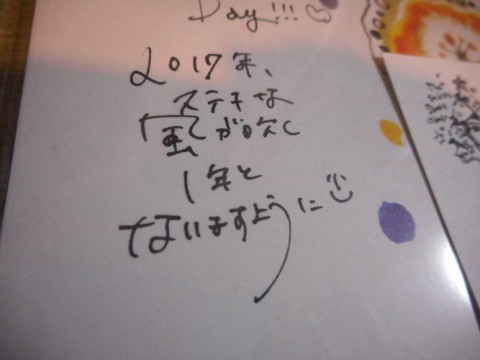 Day!!!
2017年、
ステキな
風が吹く
1年と
なりますように